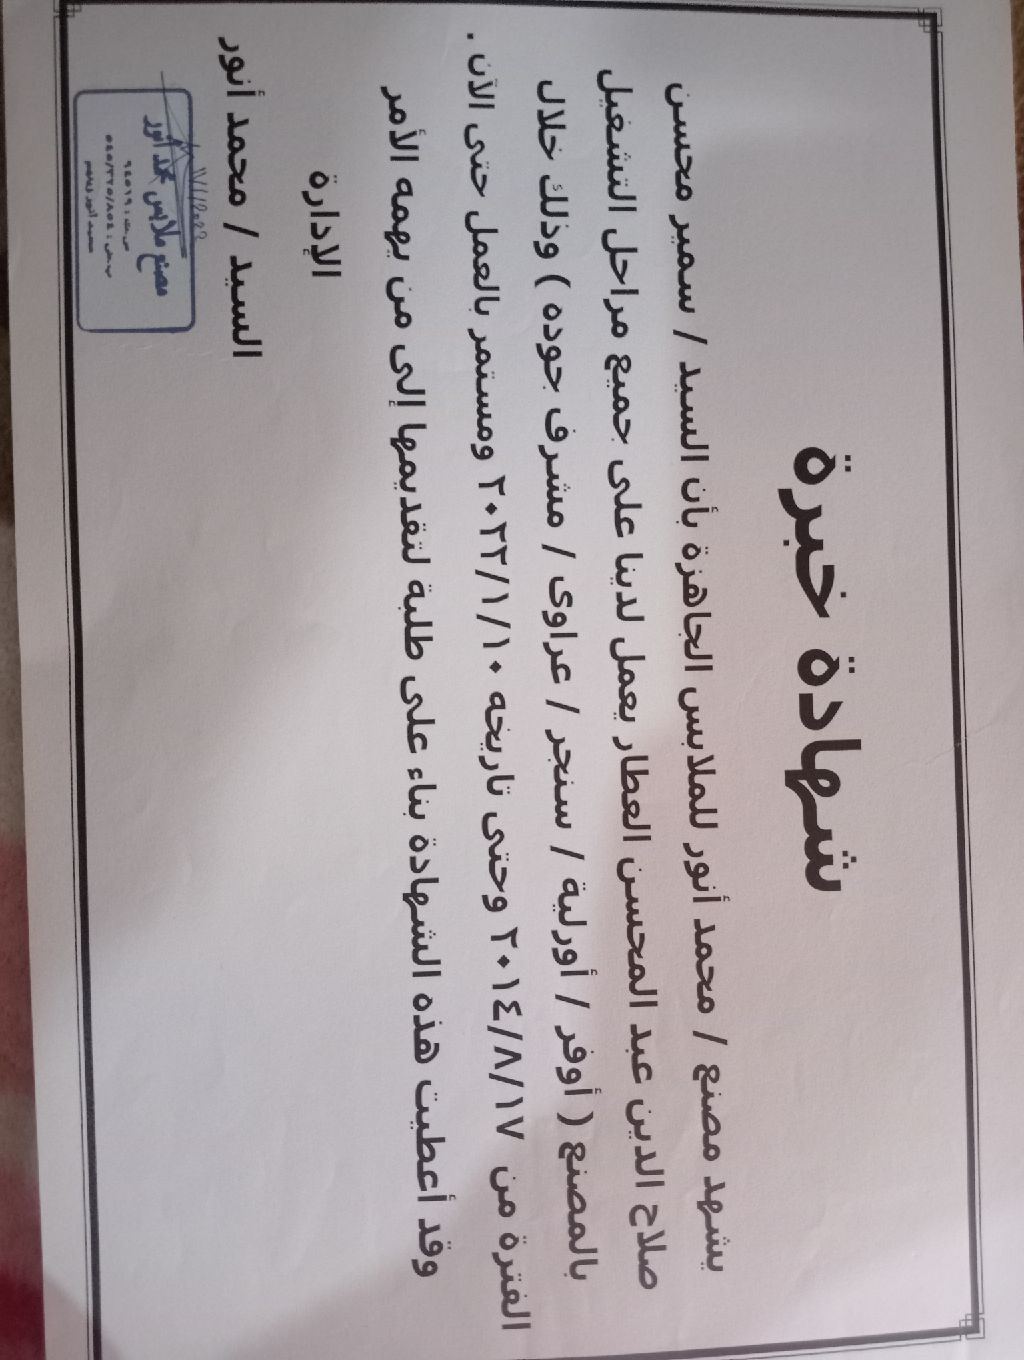 شهادة خبرة
يشهد مصنع / محمد أنور للملابس الجاهزة بأن السيد / سمير محسن
صلاح الدين عبد المحسن العطار يعمل لدينا على جميع مراحل التشغيل
بالمصنع ( أوفر / أورلية / سنجر / عراوى / مشرف جوده ) وذلك خلال
الفترة من ٢٠١٤/٨/١٧ وحتى تاريخه ٢٠٢٢/١/١٠ ومستمر بالعمل حتى الآن .
وقد أعطيت هذه الشهادة بناء على طلبة لتقديمها إلى من يهمه الأمر
الإدارة
السيد / محمد أنور
مصنع ملابس محمد أنور